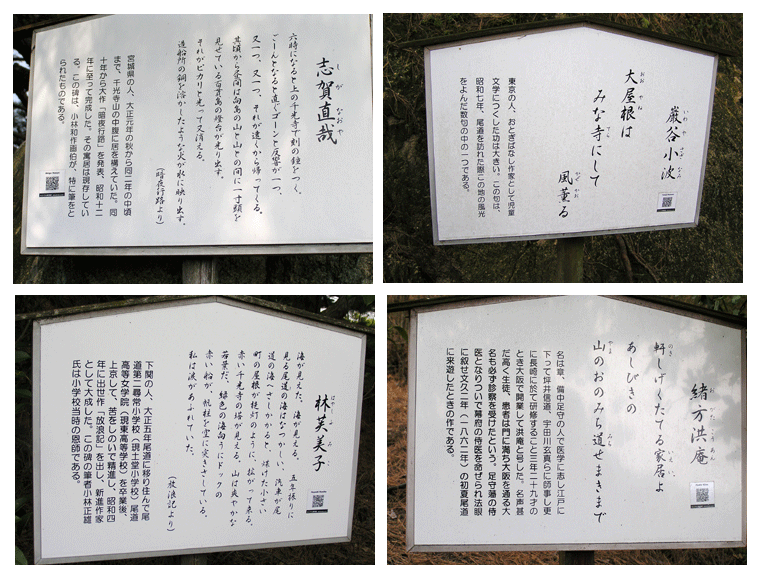 志賀直哉
しがなおや
六時になると上の千光寺で刻の鐘をつく。
ごーんとなると直ぐゴーンと反響が一つ、
又一つ、又一つ、それが遠くから帰ってくる。
其頃から昼間は向島の山と山との間に一寸頭を
見せている百貫島の燈台が光り出す。
それがピカリと光って又消える。
造船所の銅を溶かしたような火が水に映り出す。
（暗夜行路より）
宮城県の人、大正元年の秋から同二年の中頃
まで、千光寺山の中腹に居を構えていた。同
十年から大作「暗夜行路」を発表、昭和十二
年に至って完成した。その寓居は現存してい
る。この碑は、小林和作画伯が、特に筆をと
られたものである。
巌谷小波
いわやさざなみ
大屋根は
おおやね
みな寺にして
てら
風薫る
かぜかお
東京の人、おとぎばなし作家として児童
文学につくした功は大きい。この句は、
昭和七年、尾道を訪れた際この地の風光
をよんだ数句の中の一つである。
林芙美子
はやしふみこ
海が見えた、海が見える。五年振りに
見る尾道の海はなつかしい、汽車が尾
道の海へさしかかると、煤けた小さい
町の屋根が提灯のように、拡がって来る、
赤い千光寺の塔が見える、山は爽やかな
若葉だ、緑色の海向うにドックの
赤い船が、帆柱を空に突きさしている。
私は涙があふれていた。
（放浪記より）
下関の人、大正五年尾道に移り住んで尾
道第二尋常小学校（現土堂小学校）尾道
高等女学院（現東高等学校）を卒業後、
上京して、苦をしのいで精進し、昭和四
年に出世作「放浪記」を出し、新進作家
として大成した。この碑の筆者小林正雄
氏は小学校当時の恩師である。
緒方洪庵
おがたこうあん
軒しげくたてる家居よ
のき いえい
あしびきの
山のおのみち道せまきまで
やま みち
名は章、備中足守の人で医学に志し江戸に
下って坪井信道、宇田川玄真らに師事し更
に長崎に於て研修すること三年二十九才の
とき大阪で開業して洪庵と号した。名声甚
だ高く生徒、患者は門に満ち大阪を通る大
名も必ず診察を受けたという。足守藩の侍
医となりついで幕府の侍医を命ぜられ法眼
に叙せ文久二年（一八六二年）の初夏尾道
に来遊したときの作である。